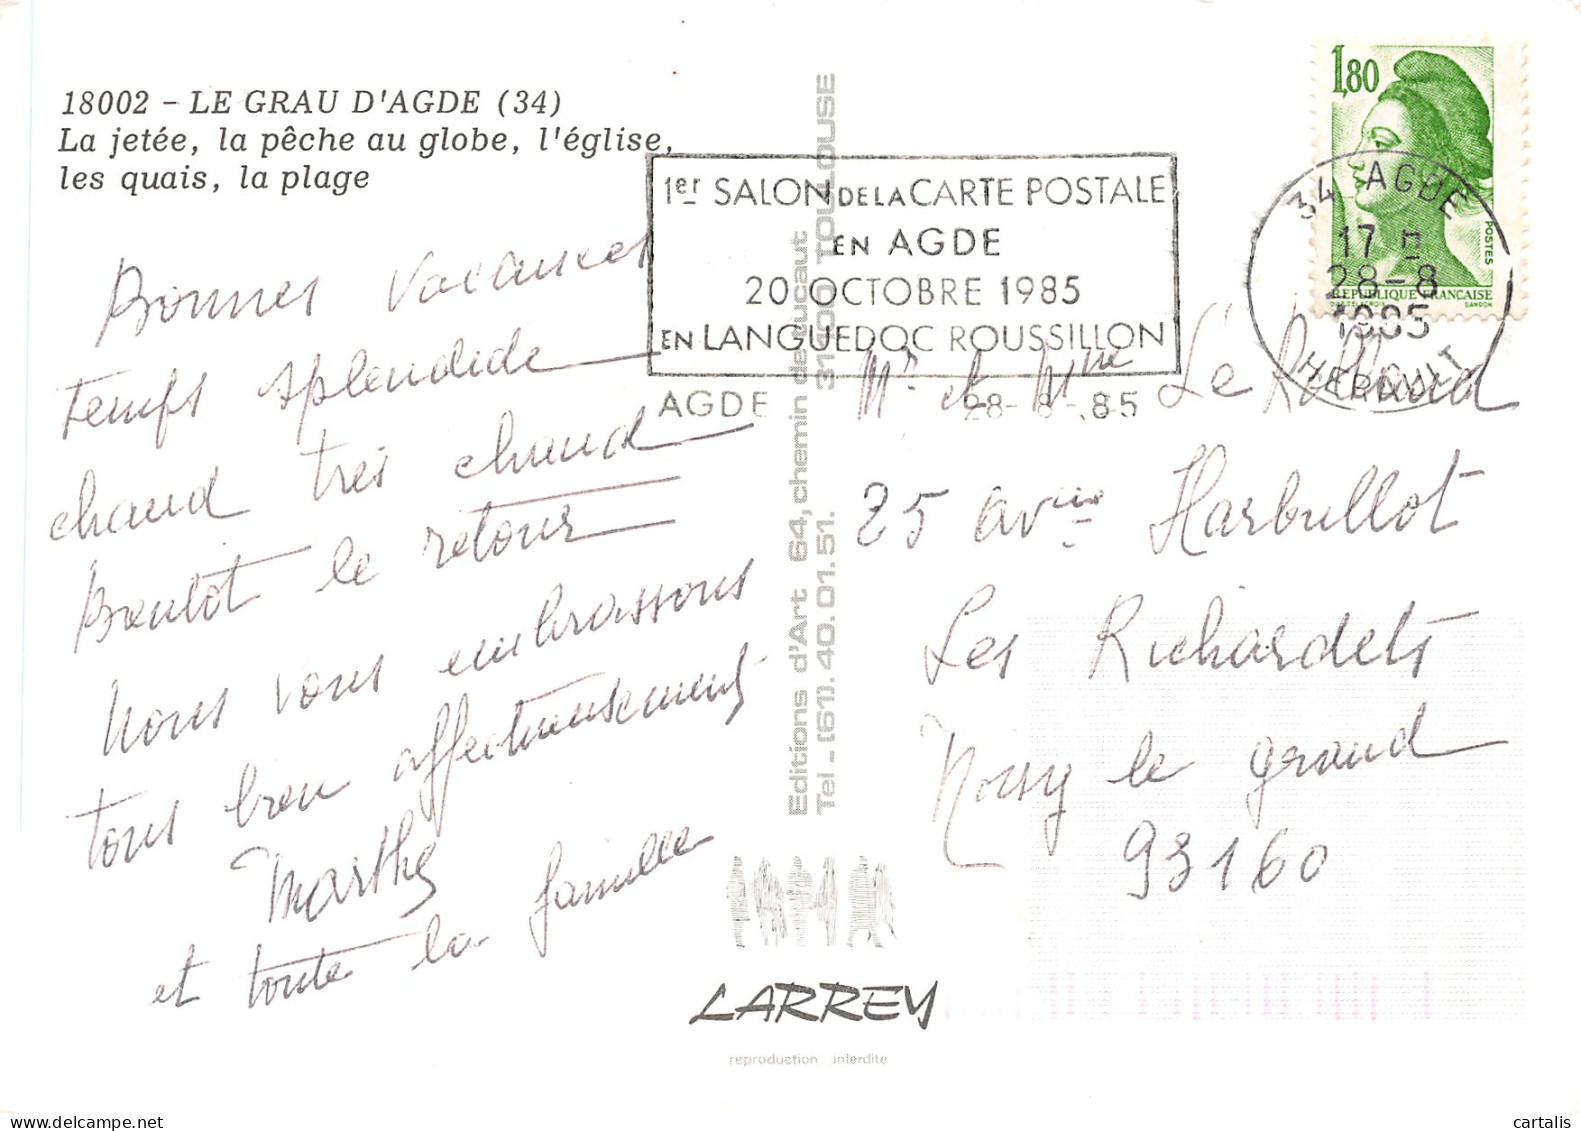 18002 - LE GRAU D'AGDE (34)
La jetée, la pêche au globe, l'église,
les quais, la plage
Bonnes vacances
temps splendide
chaud très chaud
Bientot le retour
Nous vous embrassons
tous bien affectueusement
Marthe
et toute la famille
1er SALON DE LA CARTE POSTALE
EN AGDE
20 OCTOBRE 1985
EN LANGUEDOC ROUSSILLON
AGDE 28-8-85
Editions d'Art 64, chemin de ducaut
Tel - (61). 40.01.51. 31400 TOULOUSE
LARREY
reproduction interdite
1,80
POSTES
REPUBLIQUE FRANÇAISE
GANDON
34 AGDE
17 H
28-8
1985
HERAULT
Mr et Mme Le Rolland
25 avnue Harbullot
Les Richardets
Noisy le grand
93160
cartalis delcampe.net